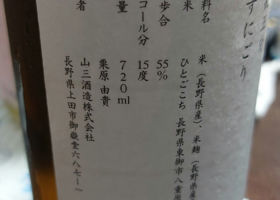 すにごり
料名 米(長野県産)、米麹(長野県産
米 ひとごこち 長野県東御市八重原
歩合 55%
コール分 15度
量 720ml
栗原 由貴
者 山三酒造株式会社
長野県上田市御嶽堂六八七ー